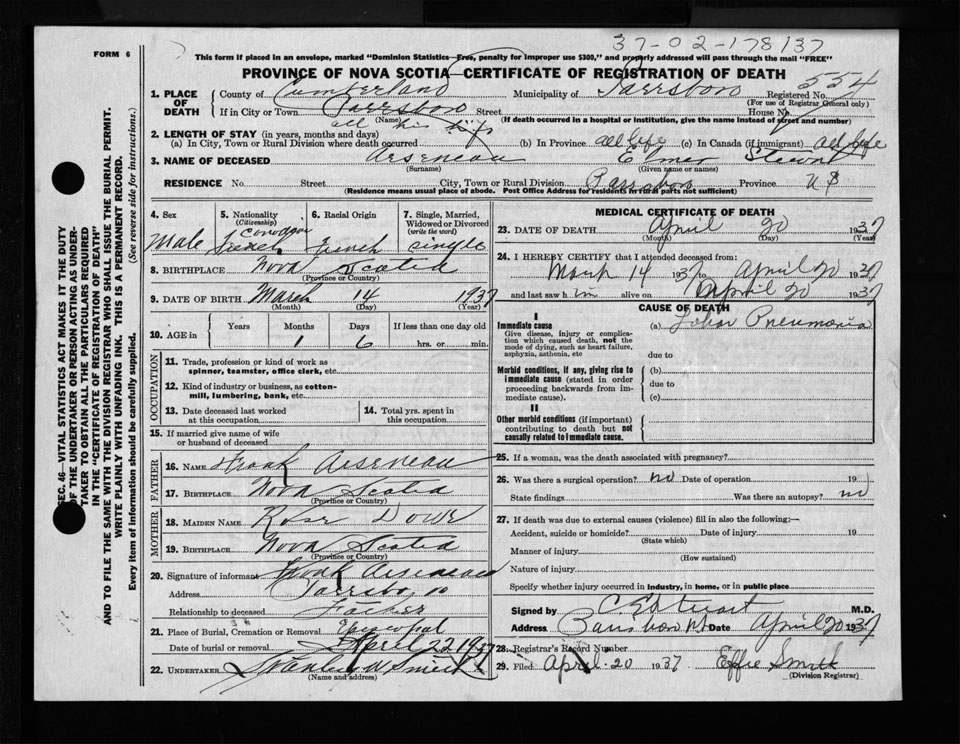 37-02-178137
FORM 6
This form if placed in an envelope, marked "Dominion Statistics—Free, penalty for improper use $300," and properly addressed will pass through the mail "FREE"
PROVINCE OF NOVA SCOTIA—CERTIFICATE OF REGISTRATION OF DEATH
554
1. PLACE OF DEATH
County of Cumberland Municipality of Parrsboro Registered No.
(For use of Registrar General only)
If in City or Town Parrsboro Street House No.
(Name) (If death occurred in a hospital or institution, give the name instead of street and number)
2. LENGTH OF STAY (in years, months and days) all his life
(a) In City, Town or Rural Division where death occurred (b) In Province all life (c) In Canada (if immigrant) all life
3. NAME OF DECEASED Arseneau Elmer Stewart
(Surname) (Given name or names)
RESIDENCE No. Street City, Town or Rural Division Parrsboro Province NS
(Residence means usual place of abode. Post Office Address for residents in rural parts not sufficient)
4. Sex 5. Nationality (Citizenship) 6. Racial Origin 7. Single, Married, Widowed or Divorced (write the word)
Male French French single
8. BIRTHPLACE Nova Scotia
(Province or Country)
9. DATE OF BIRTH March 14 1937
(Month) (Day) (Year)
10. AGE in Years Months Days If less than one day old
1 6 hrs. or min.
OCCUPATION
11. Trade, profession or kind of work as spinner, teamster, office clerk, etc.
12. Kind of industry or business, as cotton-mill, lumbering, bank, etc.
13. Date deceased last worked at this occupation
14. Total yrs. spent in this occupation
15. If married give name of wife or husband of deceased
FATHER
16. NAME Frank Arseneau
17. BIRTHPLACE Nova Scotia
(Province or Country)
MOTHER
18. MAIDEN NAME Rose
19. BIRTHPLACE Nova Scotia
(Province or Country)
20. Signature of informant Frank Arseneau
Address Parrsboro
Relationship to deceased Father
21. Place of Burial, Cremation or Removal Episcopal
Date of burial or removal April 22 1937
22. UNDERTAKER Stanley W Smith
(Name and address)
MEDICAL CERTIFICATE OF DEATH
23. DATE OF DEATH April 20 1937
(Month) (Day) (Year)
24. I HEREBY CERTIFY that I attended deceased from:
March 14 1937 to April 20 1937
and last saw him alive on April 20 1937
CAUSE OF DEATH
I
Immediate cause (a) Lobar Pneumonia
Give disease, injury or complication which caused death, not the mode of dying, such as heart failure, asphyxia, asthenia, etc
due to
Morbid conditions, if any, giving rise to immediate cause (stated in order proceeding backwards from immediate cause).
(b)
due to
(c)
II
Other morbid conditions (if important) contributing to death but not causally related to immediate cause.
25. If a woman, was the death associated with pregnancy?
26. Was there a surgical operation? no Date of operation 19
State findings Was there an autopsy? no
27. If death was due to external causes (violence) fill in also the following:—
Accident, suicide or homicide? Date of injury 19
(State which)
Manner of injury
(How sustained)
Nature of injury
Specify whether injury occurred in industry, in home, or in public place
Signed by M.D.
Address Parrsboro NS Date April 20 1937
28. Registrar's Record Number
29. Filed April 20 1937 Effie Smith
(Division Registrar)
SEC. 46—VITAL STATISTICS ACT MAKES IT THE DUTY
OF THE UNDERTAKER OR PERSON ACTING AS UNDER-
TAKER TO OBTAIN ALL THE PARTICULARS REQUIRED
IN THE "CERTIFICATE OF REGISTRATION OF DEATH"
AND TO FILE THE SAME WITH THE DIVISION REGISTRAR WHO SHALL ISSUE THE BURIAL PERMIT.
WRITE PLAINLY WITH UNFADING INK. THIS IS A PERMANENT RECORD.
Every item of information should be carefully supplied. (See reverse side for instructions.)